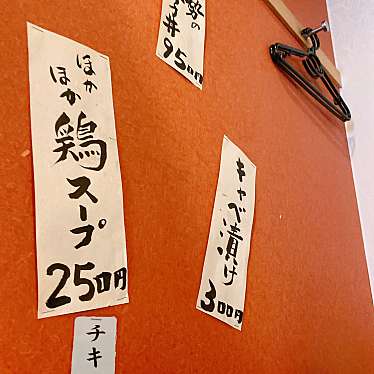 ほか
ほか
鶏スープ
250円
キャベ漬け
300円
勢の
丼
950円
チキ